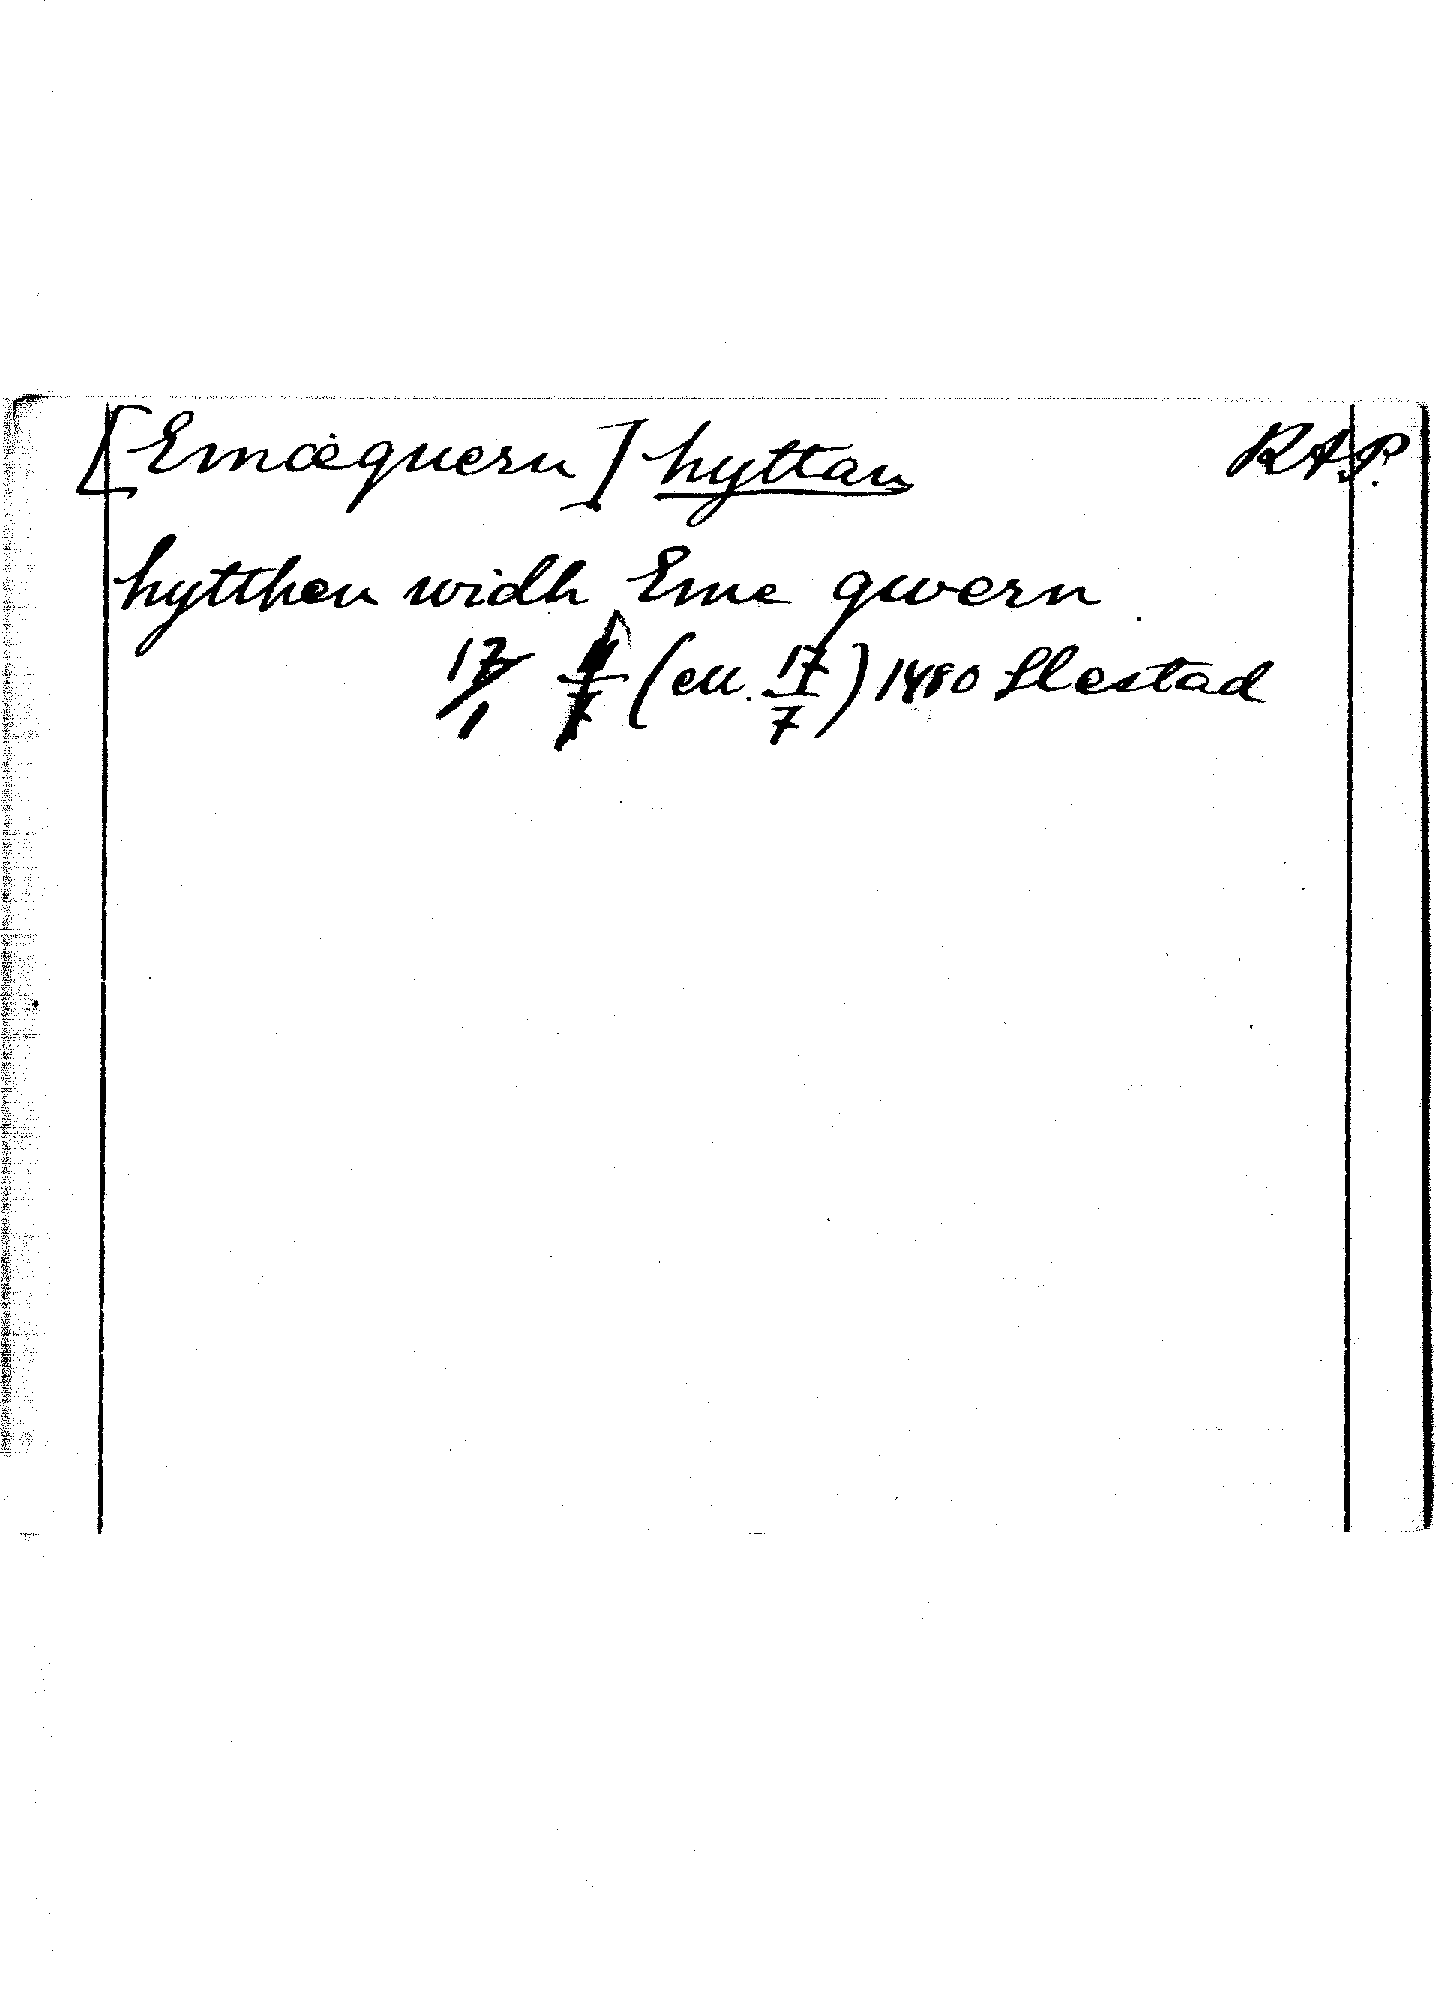 [Emæquern] hyttan RAP.
hytthen widh Eme qwern
17/1 (ell. 17/7) 1480 Slestad